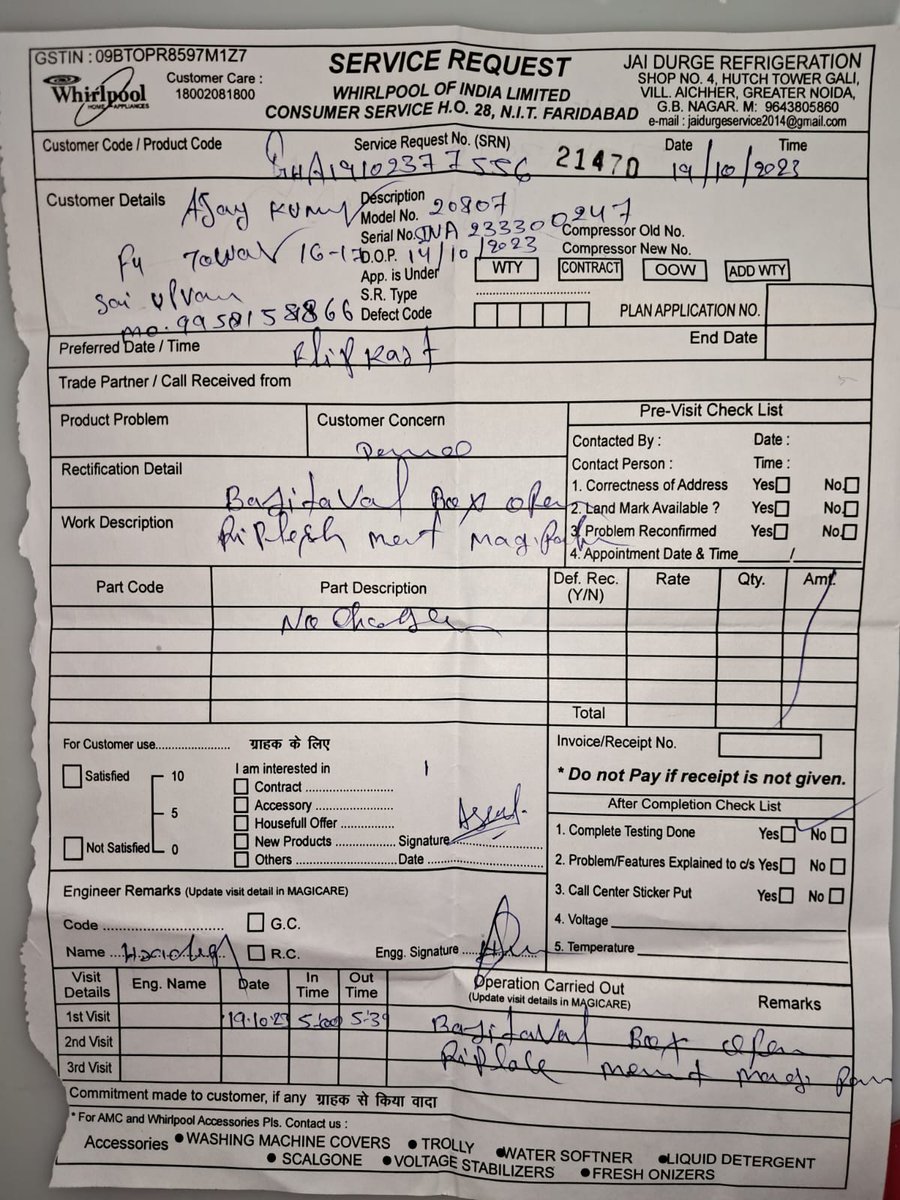 GSTIN : 09BTOPR8597M1Z7
Whirlpool
HOME APPLIANCES
Customer Care :
18002081800
SERVICE REQUEST
WHIRLPOOL OF INDIA LIMITED
CONSUMER SERVICE H.O. 28, N.I.T. FARIDABAD
JAI DURGE REFRIGERATION
SHOP NO. 4, HUTCH TOWER GALI,
VILL. AICHHER, GREATER NOIDA,
G.B. NAGAR. M: 9643805860
e-mail : jaidurgeservice2014@gmail.com
Customer Code / Product Code
Service Request No. (SRN) 21470
Date Time
19/10/2023
Customer Details Ajay Kumar
Tower 16-17
mo. 9958158866
Description
Model No. 20807
Serial No. INA 233300247
D.O.P. 14/10/2023
App. is Under WTY CONTRACT OOW ADD WTY
S.R. Type
Defect Code
Compressor Old No.
Compressor New No.
PLAN APPLICATION NO.
End Date
Preferred Date / Time Flipkart
Trade Partner / Call Received from
Product Problem Customer Concern
Demo
Rectification Detail Box open
Work Description
Pre-Visit Check List
Contacted By : Date :
Contact Person : Time :
1. Correctness of Address Yes No.
2. Land Mark Available ? Yes No.
3. Problem Reconfirmed Yes No.
4. Appointment Date & Time /
Part Code Part Description Def. Rec. (Y/N) Rate Qty. Amt.
No
Total
For Customer use ग्राहक के लिए
Satisfied 10
5
Not Satisfied 0
I am interested in
Contract
Accessory
Housefull Offer
New Products Signature
Others Date
Invoice/Receipt No.
* Do not Pay if receipt is not given.
After Completion Check List
1. Complete Testing Done Yes No
2. Problem/Features Explained to c/s Yes No
3. Call Center Sticker Put Yes No
4. Voltage
5. Temperature
Engineer Remarks (Update visit detail in MAGICARE)
Code G.C.
Name R.C. Engg. Signature
Visit Details Eng. Name Date In Time Out Time Operation Carried Out (Update visit details in MAGICARE) Remarks
1st Visit 19.10.23 5:00 5:39 Box open
2nd Visit
3rd Visit
Commitment made to customer, if any ग्राहक से किया वादा
* For AMC and Whirlpool Accessories Pls. Contact us :
Accessories • WASHING MACHINE COVERS • TROLLY • WATER SOFTNER • LIQUID DETERGENT
• SCALGONE • VOLTAGE STABILIZERS • FRESH ONIZERS